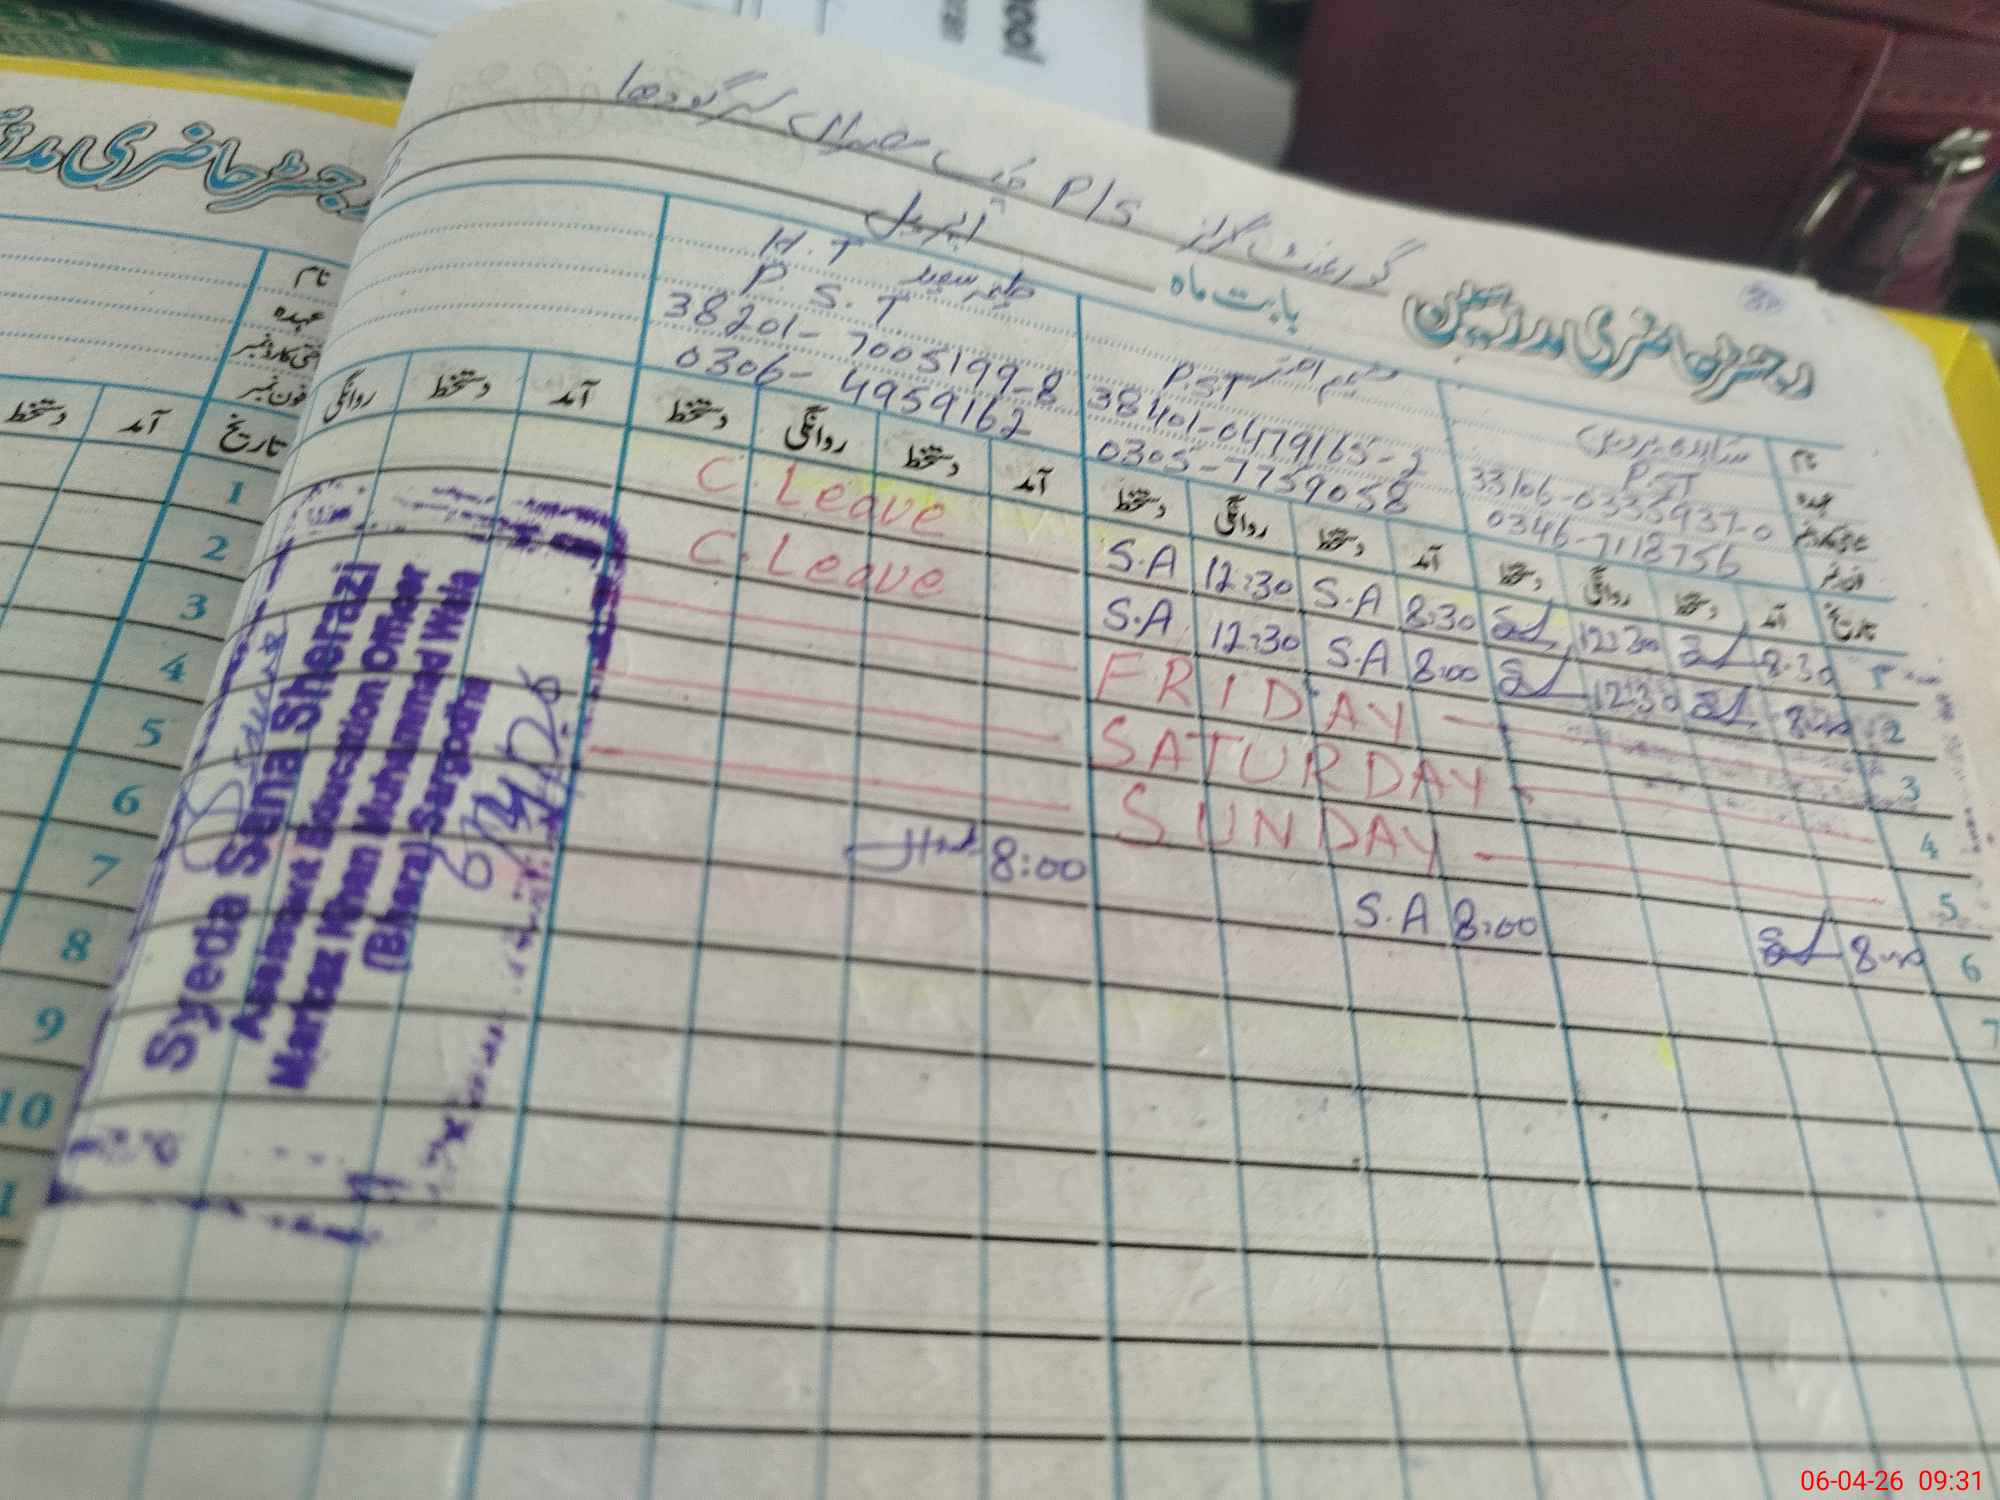 گورنمنٹ گرلز P/S
رجسٹر حاضری مدرسین
بابت ماہ اپریل
نام
P.S.T
33106-0335937-0
0346-7118756
P.S.T
38401-0479165-2
0305-7759058
H.T
P.S.T
38201-7005199-8
0306-4959162
تاریخ آمد دستخط روانگی دستخط آمد دستخط روانگی دستخط آمد دستخط روانگی دستخط آمد دستخط روانگی
8:30 12:30 8:30 S.A 12:30 S.A C. Leave
2 8:00 12:30 8:00 S.A 12:30 S.A C. Leave
3 FRIDAY
4 SATURDAY
5 SUNDAY
6 8:00 8:00 S.A 8:00
7
Syeda Sana Sherazi
Assistant Education Officer
Markaz Khan Muhammad Wala
(Bhera) Sargodha
6/4/026
رجسٹر حاضری
نام
عہدہ
شناختی کارڈ نمبر
فون نمبر
تاریخ آمد دستخط
1
2
3
4
5
6
7
8
9
10
ool
06-04-26 09:31